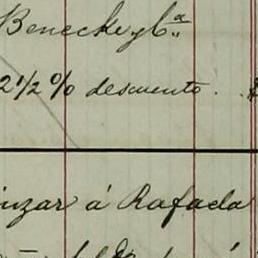 Benecke y Cª
2½% descuento. $
inzar á Rafaela